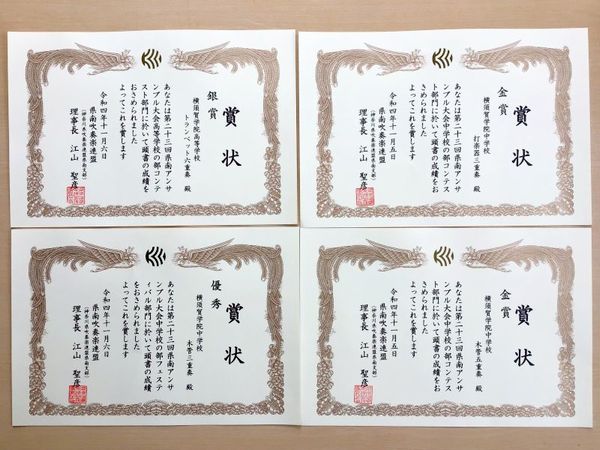 賞状
銀賞
横須賀学院高等学校
トランペット六重奏 殿
あなたは第二十三回県南アンサ
ンブル大会高等学校の部コンテ
スト部門に於いて頭書の成績を
おさめられました
よってこれを賞します
令和四年十一月六日
県南吹奏楽連盟
(神奈川県吹奏楽連盟県南支部)
理事長 江山 聖彦
賞状
金賞
横須賀学院中学校
打楽器三重奏 殿
あなたは第二十三回県南アンサ
ンブル大会中学校の部コンテス
ト部門に於いて頭書の成績をお
さめられました
よってこれを賞します
令和四年十一月五日
県南吹奏楽連盟
(神奈川県吹奏楽連盟県南支部)
理事長 江山 聖彦
賞状
優秀
横須賀学院中学校
木管三重奏 殿
あなたは第二十三回県南アンサ
ンブル大会中学校の部フェステ
ィバル部門に於いて頭書の成績
をおさめられました
よってこれを賞します
令和四年十一月六日
県南吹奏楽連盟
(神奈川県吹奏楽連盟県南支部)
理事長 江山 聖彦
賞状
金賞
横須賀学院中学校
木管五重奏 殿
あなたは第二十三回県南アンサ
ンブル大会中学校の部コンテス
ト部門に於いて頭書の成績をお
さめられました
よってこれを賞します
令和四年十一月五日
県南吹奏楽連盟
(神奈川県吹奏楽連盟県南支部)
理事長 江山 聖彦